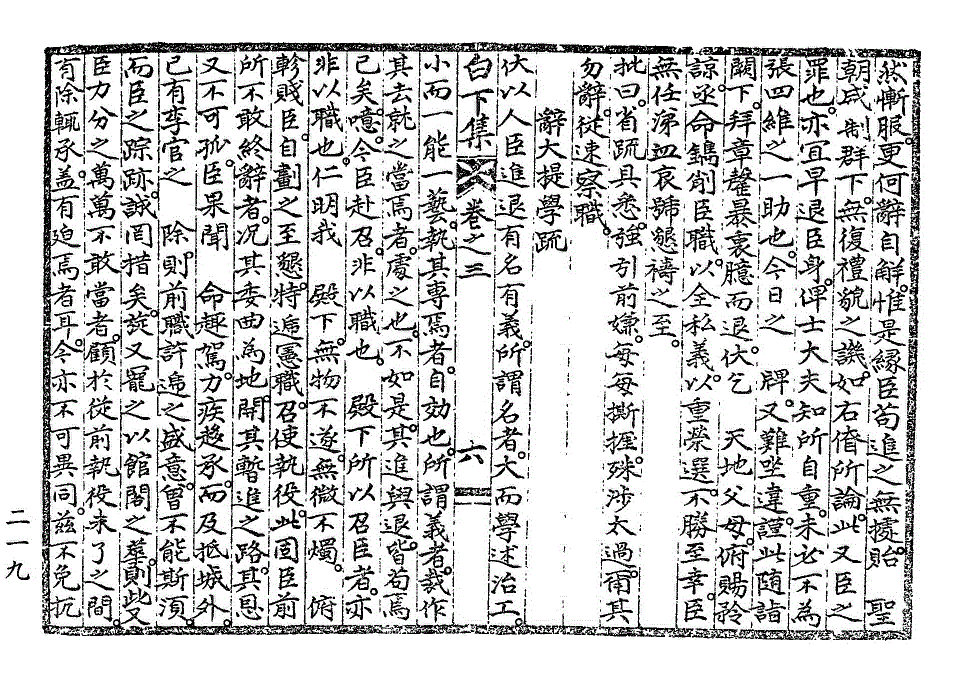 然慚服更何辭自解惟是緣臣苟進之無據貽 聖
朝咸制群下無復禮貌之譏如右偦所論此又臣之
罪也亦宜早退臣身俾士大夫知所自重未必不為
張四維之一助也今日之 牌又難坐違謹此随詣
闕下拜章聲暴衷臆而退伏乞 天地父母俯賜矜
諒亟命鐫削臣職以全私義以重榮選不勝至幸臣
無任涕血哀號懇禱之至
批曰省疏具悉強引前嫌每每撕捱殊涉太過甭其
勿辭從速察職
辭大提學疏
伏以人臣進退有名有義所謂名者大而學述治工
白下集 卷之三 六
小而一能一藝執其專焉者自効也所謂義者裁作
其去就之當焉者處之也不如是其進與退皆苟焉
已矣噫今臣赴召非以職也 殿下所以召臣者亦
非以職也仁明我 殿下無物不遂無微不燭 俯
軫賤臣自劃之至懇特遞憲職召使執役此固臣前
所不敢終辭者况其委曲為地開其暫進之路其恩
又不可孤臣果聞 命趣駕力疾趍承而及抵城外
已有李官之 除則前職許遞之盛意曾不能斯湏
而臣之踪跡誠罔措矣旋又寵之以館閣之峚則此又
臣力分之萬萬不敢當者顧於從前執役未了之間
有除輒承盖有迫焉者耳今亦不可異同玆不免扤
二一九